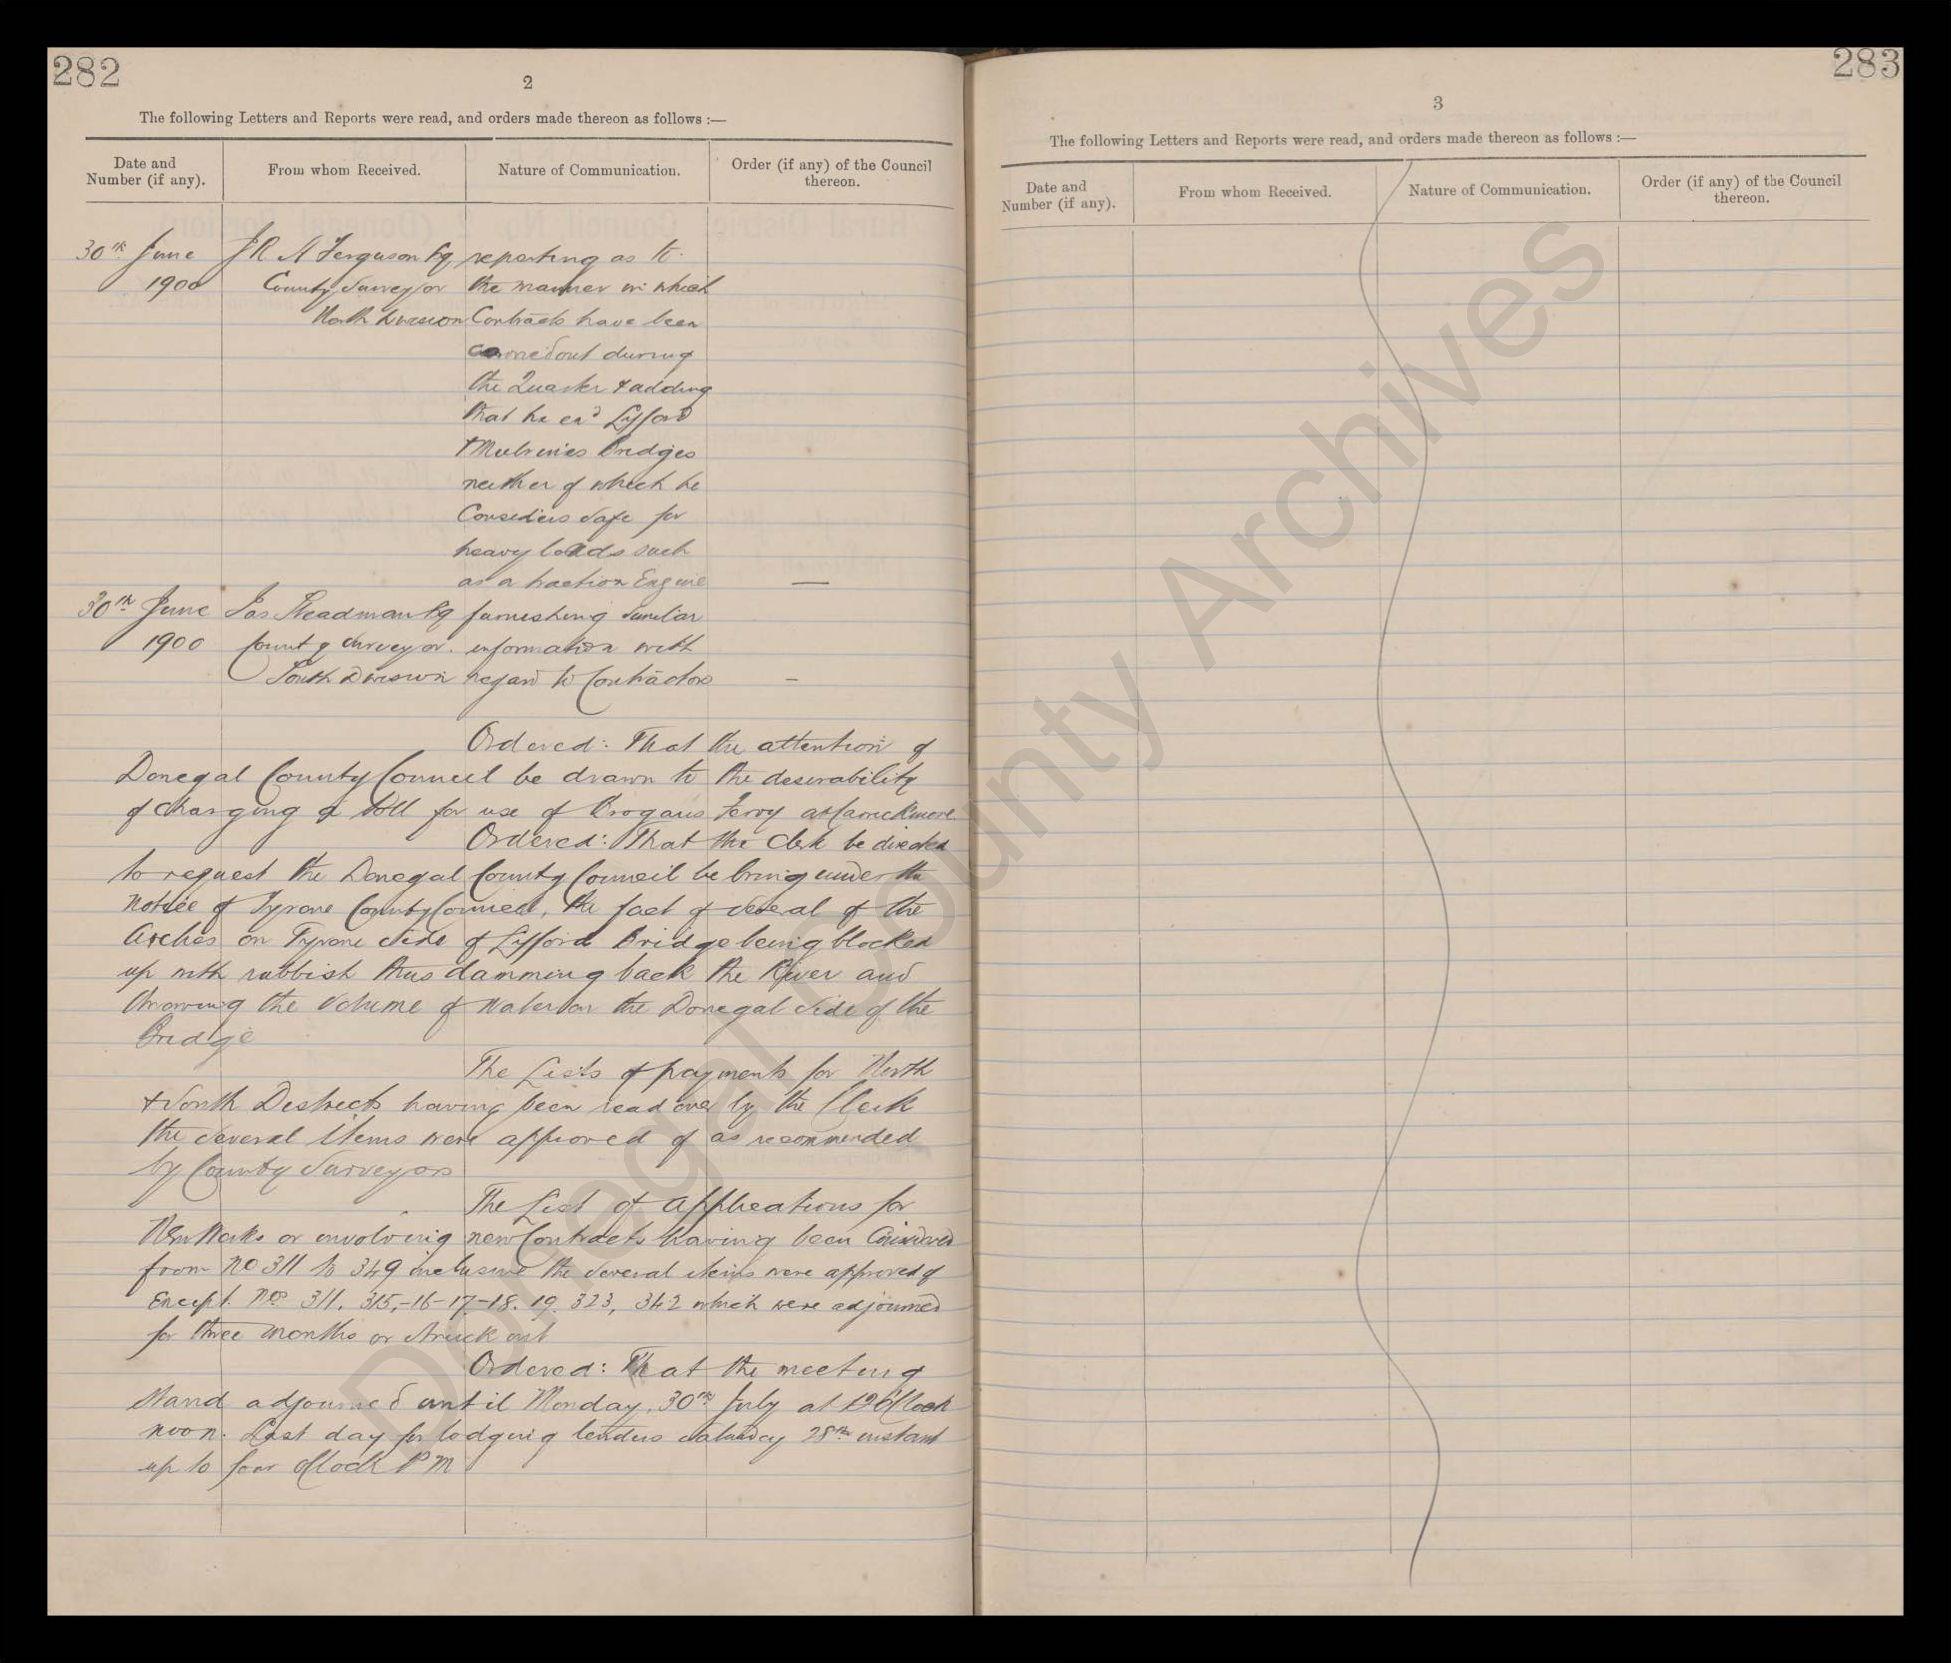 282
2
The following Letters and Reports were read, and orders made thereon as follows :—
Date and Number (if any).
From whom Received.
Nature of Communication.
Order (if any) of the Council thereon.
30th June J R A Ferguson Esq reporting as to
1900 County Surveyor the manner in which
North Division Contracts have been
carried out during
the Quarter & adding
that he exd Lifford
& Mulrines Bridges
neither of which he
Considers safe for
heavy loads such
as a traction Engine —
30th June Jas Steadman Esq furnishing similar
1900 County Surveyor. information with
South Division regard to Contractors –
Ordered: That the attention of
Donegal County Council be drawn to the desirability
of charging a toll for use of Brogans Ferry at Carrickmore
Ordered: That the Clerk be directed
to request the Donegal County Council be bring under the
notice of Tyrone County Council, the fact of several of the
Arches on Tyrone side of Lifford Bridge being blocked
up with rubbish thus damming back the River and
throwing the volume of water on the Donegal side of the
Bridge
The Lists of payments for North
& South Districts having been read over by the Clerk
the several items were approved of as recommended
by County Surveyors
The List of Applications for
New Works or involving new Contracts having been Considered
from No 311 to 349 inclusive the several items were approved of
Except Nos 311. 315,-16-17-18. 19. 323, 342 which were adjourned
for three months or struck out
Ordered: That the meeting
stand adjourned until Monday, 30th July at 12 O'Clock
noon. Last day for lodging tenders Saturday 28th instant
up to four OClock P M
283
3
The following Letters and Reports were read, and orders made thereon as follows :—
Date and Number (if any).
From whom Received.
Nature of Communication.
Order (if any) of the Council thereon.
Donegal County Archives